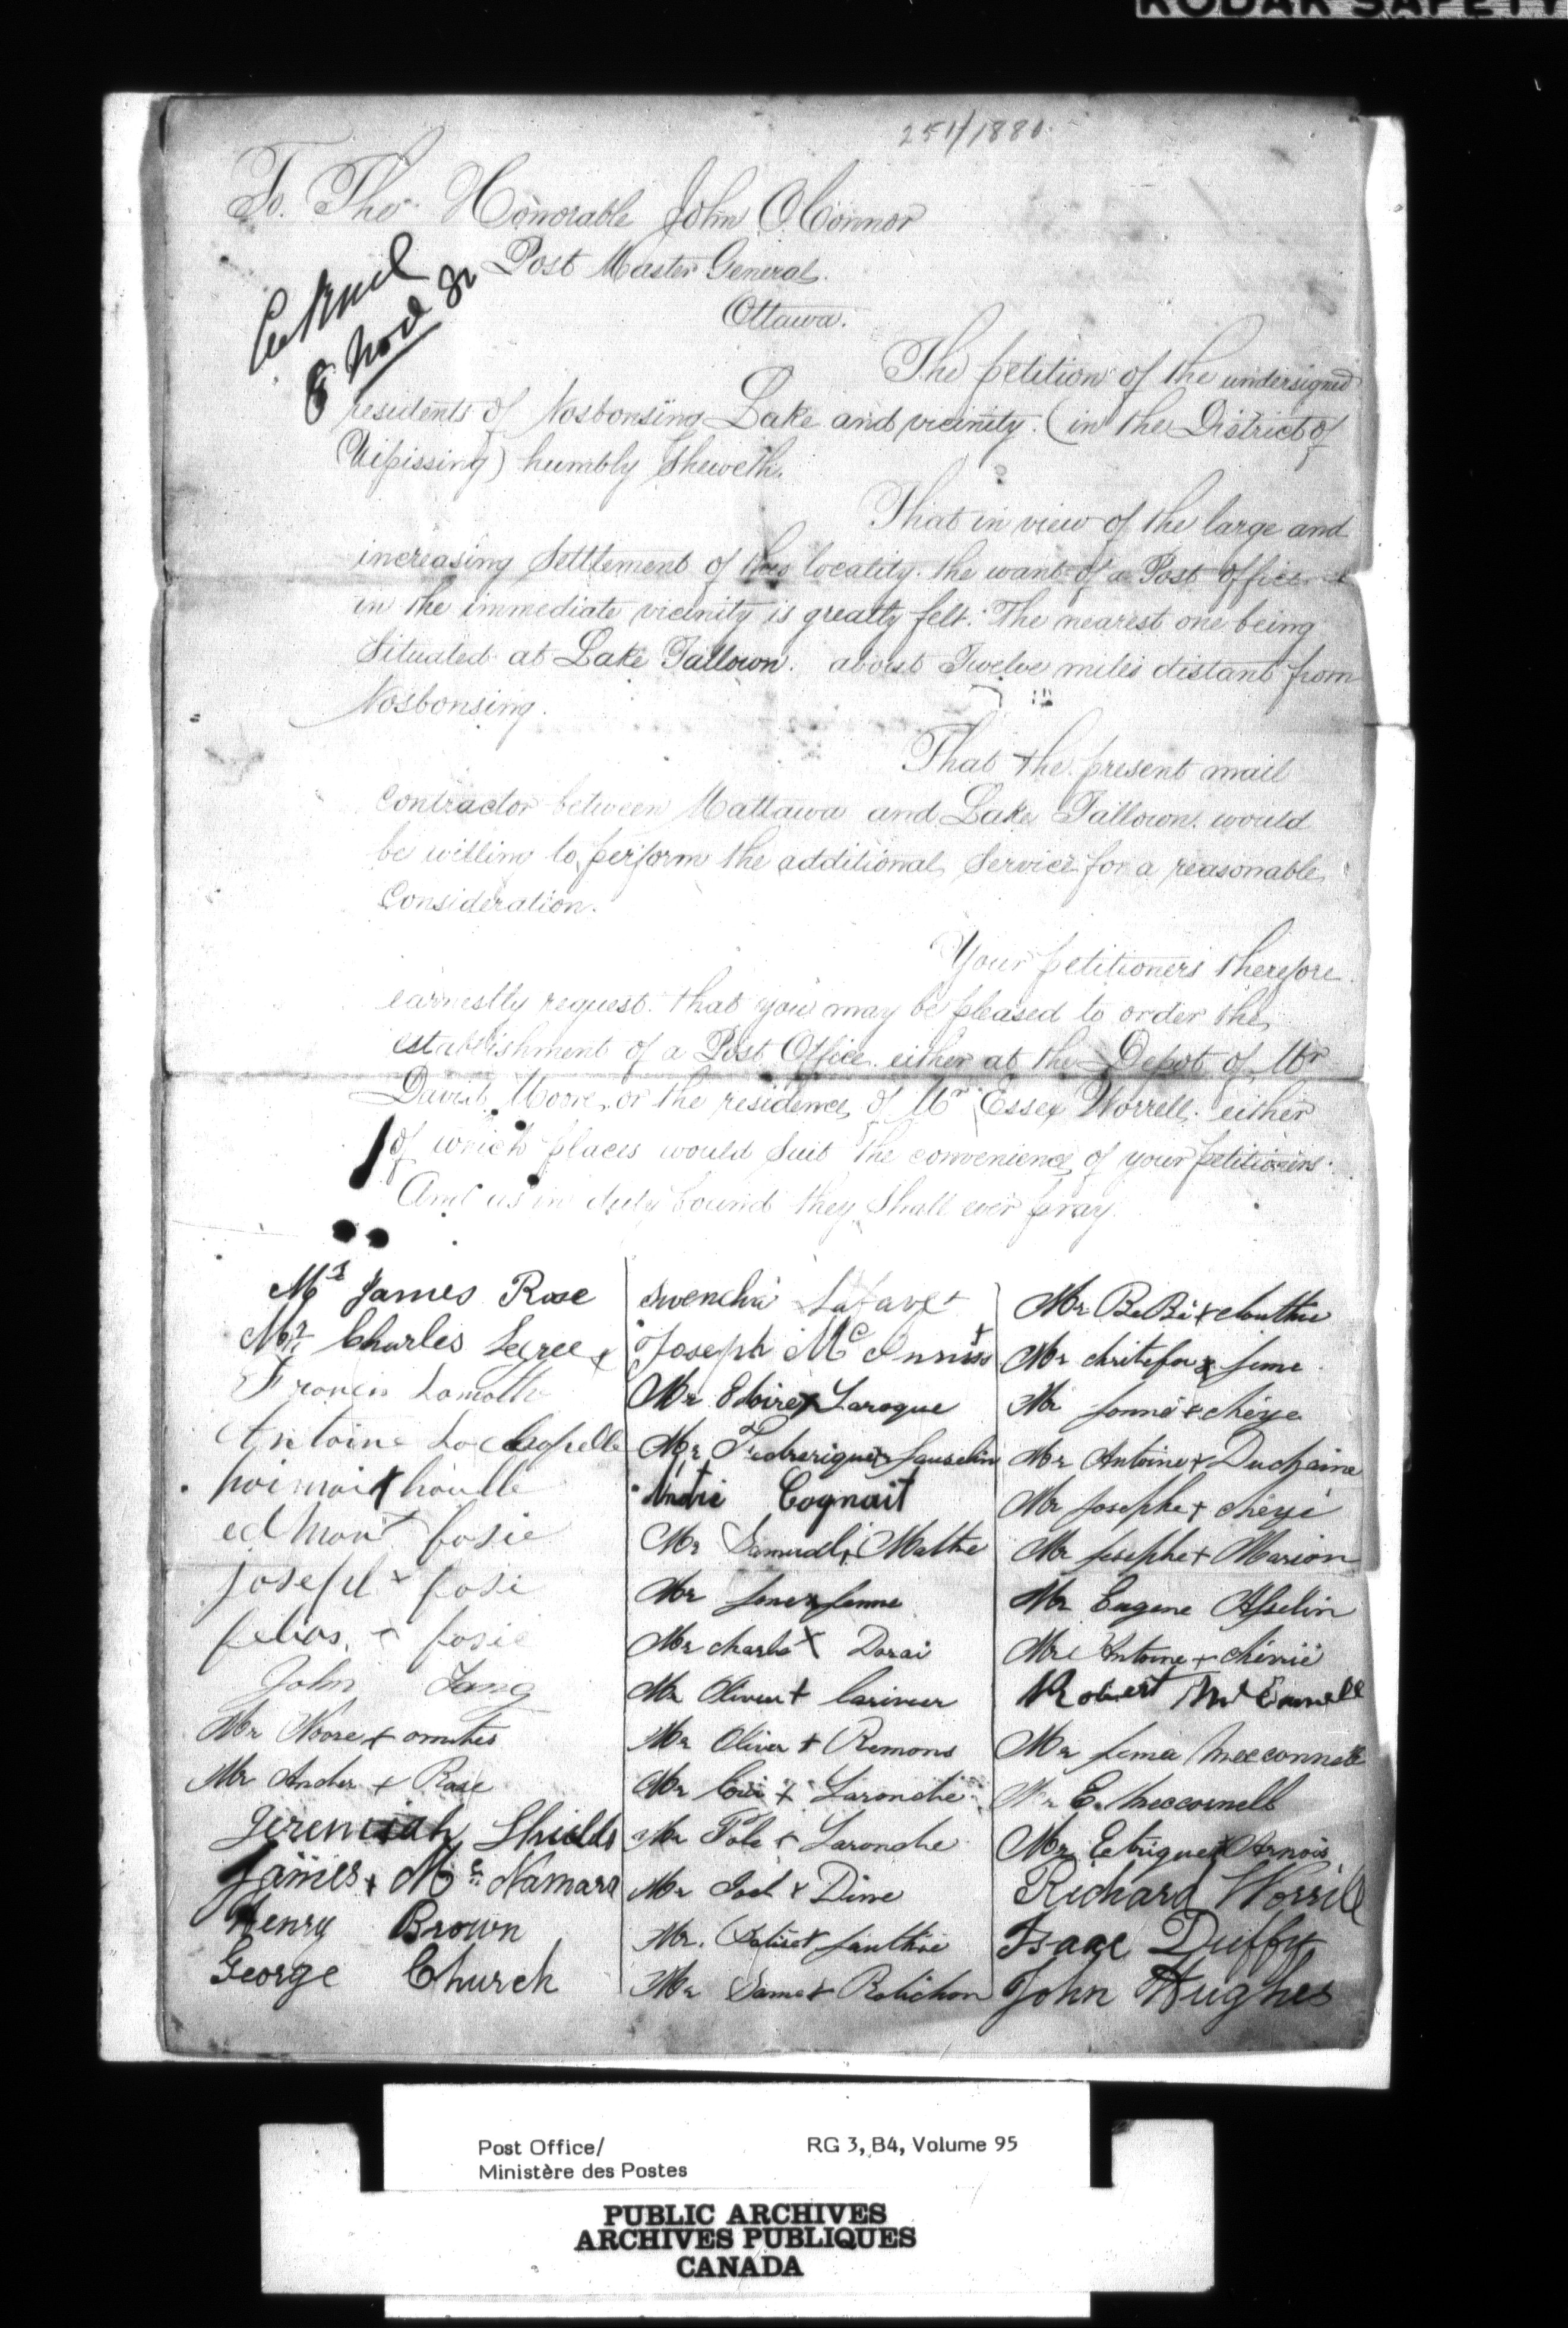 KODAK SAFETY
251/1880.
To. The Honorable John O'Connor
Post Master General.
Ottawa.
8 Nov 80
The petition of the undersigned
residents of Nosbonsing Lake and vicinity. (in the District of
Nipissing) humbly Sheweth.
That in view of the large and
increasing Settlement of this locality. the want of a Post office
in the immediate vicinity is greatly felt. The nearest one being
Situated at Lake Tallown. about Twelve miles distant from
Nosbonsing.
That the present mail
Contractor between Mattawa and Lake Tallown. would
be willin to perform the additional Service for a reasonable
Consideration.
Your petitioners therefore
earnestly request. that you may be pleased to order the
establishment of a Post Office either at the Depot of Mr
David Moore, or the residence of Mr Essex Worrell. either
of which places would Suit the convenience of your petitioners.
And as in duty bound they Shall ever pray.
Mr James Rose
Mr Charles Legree x
Francis Lamothe
Antoine
edmon + fosie
Joseph + fosi
felias + fosie
John Lang
Mr Moore +
Mr Andre + Rose
Jeremiah Shields
James + McNamara
Henry Brown
George Church
Lafave +
Joseph McInniss +
Mr x Laroque
Mr Frederique x
André Cognait
Mr Samuel + Mathe
Mr
Mr Charls X Darai
Mr Oliveur + Cariveur
Mr Oliver + Remons
Mr Loui + Laronche
Mr Pole + Laronche
Mr + Dine
Mr. Batiset
Mr Same + Robichon
Mr BaBi + clouthie
Mr
Mr + chéye
Mr Antoine + Duchaine
Mr Josephe + chéyé
Mr Josephe + Marion
Mr Eugene Asselin
Mr Antoine +
Robert
Mr Mecconnell
Mr E. Mecconnell
Mr x Arnois
Richard Worrill
Isaac Duffy
John Hughes
Post Office/ RG 3, B4, Volume 95
Ministère des Postes
PUBLIC ARCHIVES
ARCHIVES PUBLIQUES
CANADA